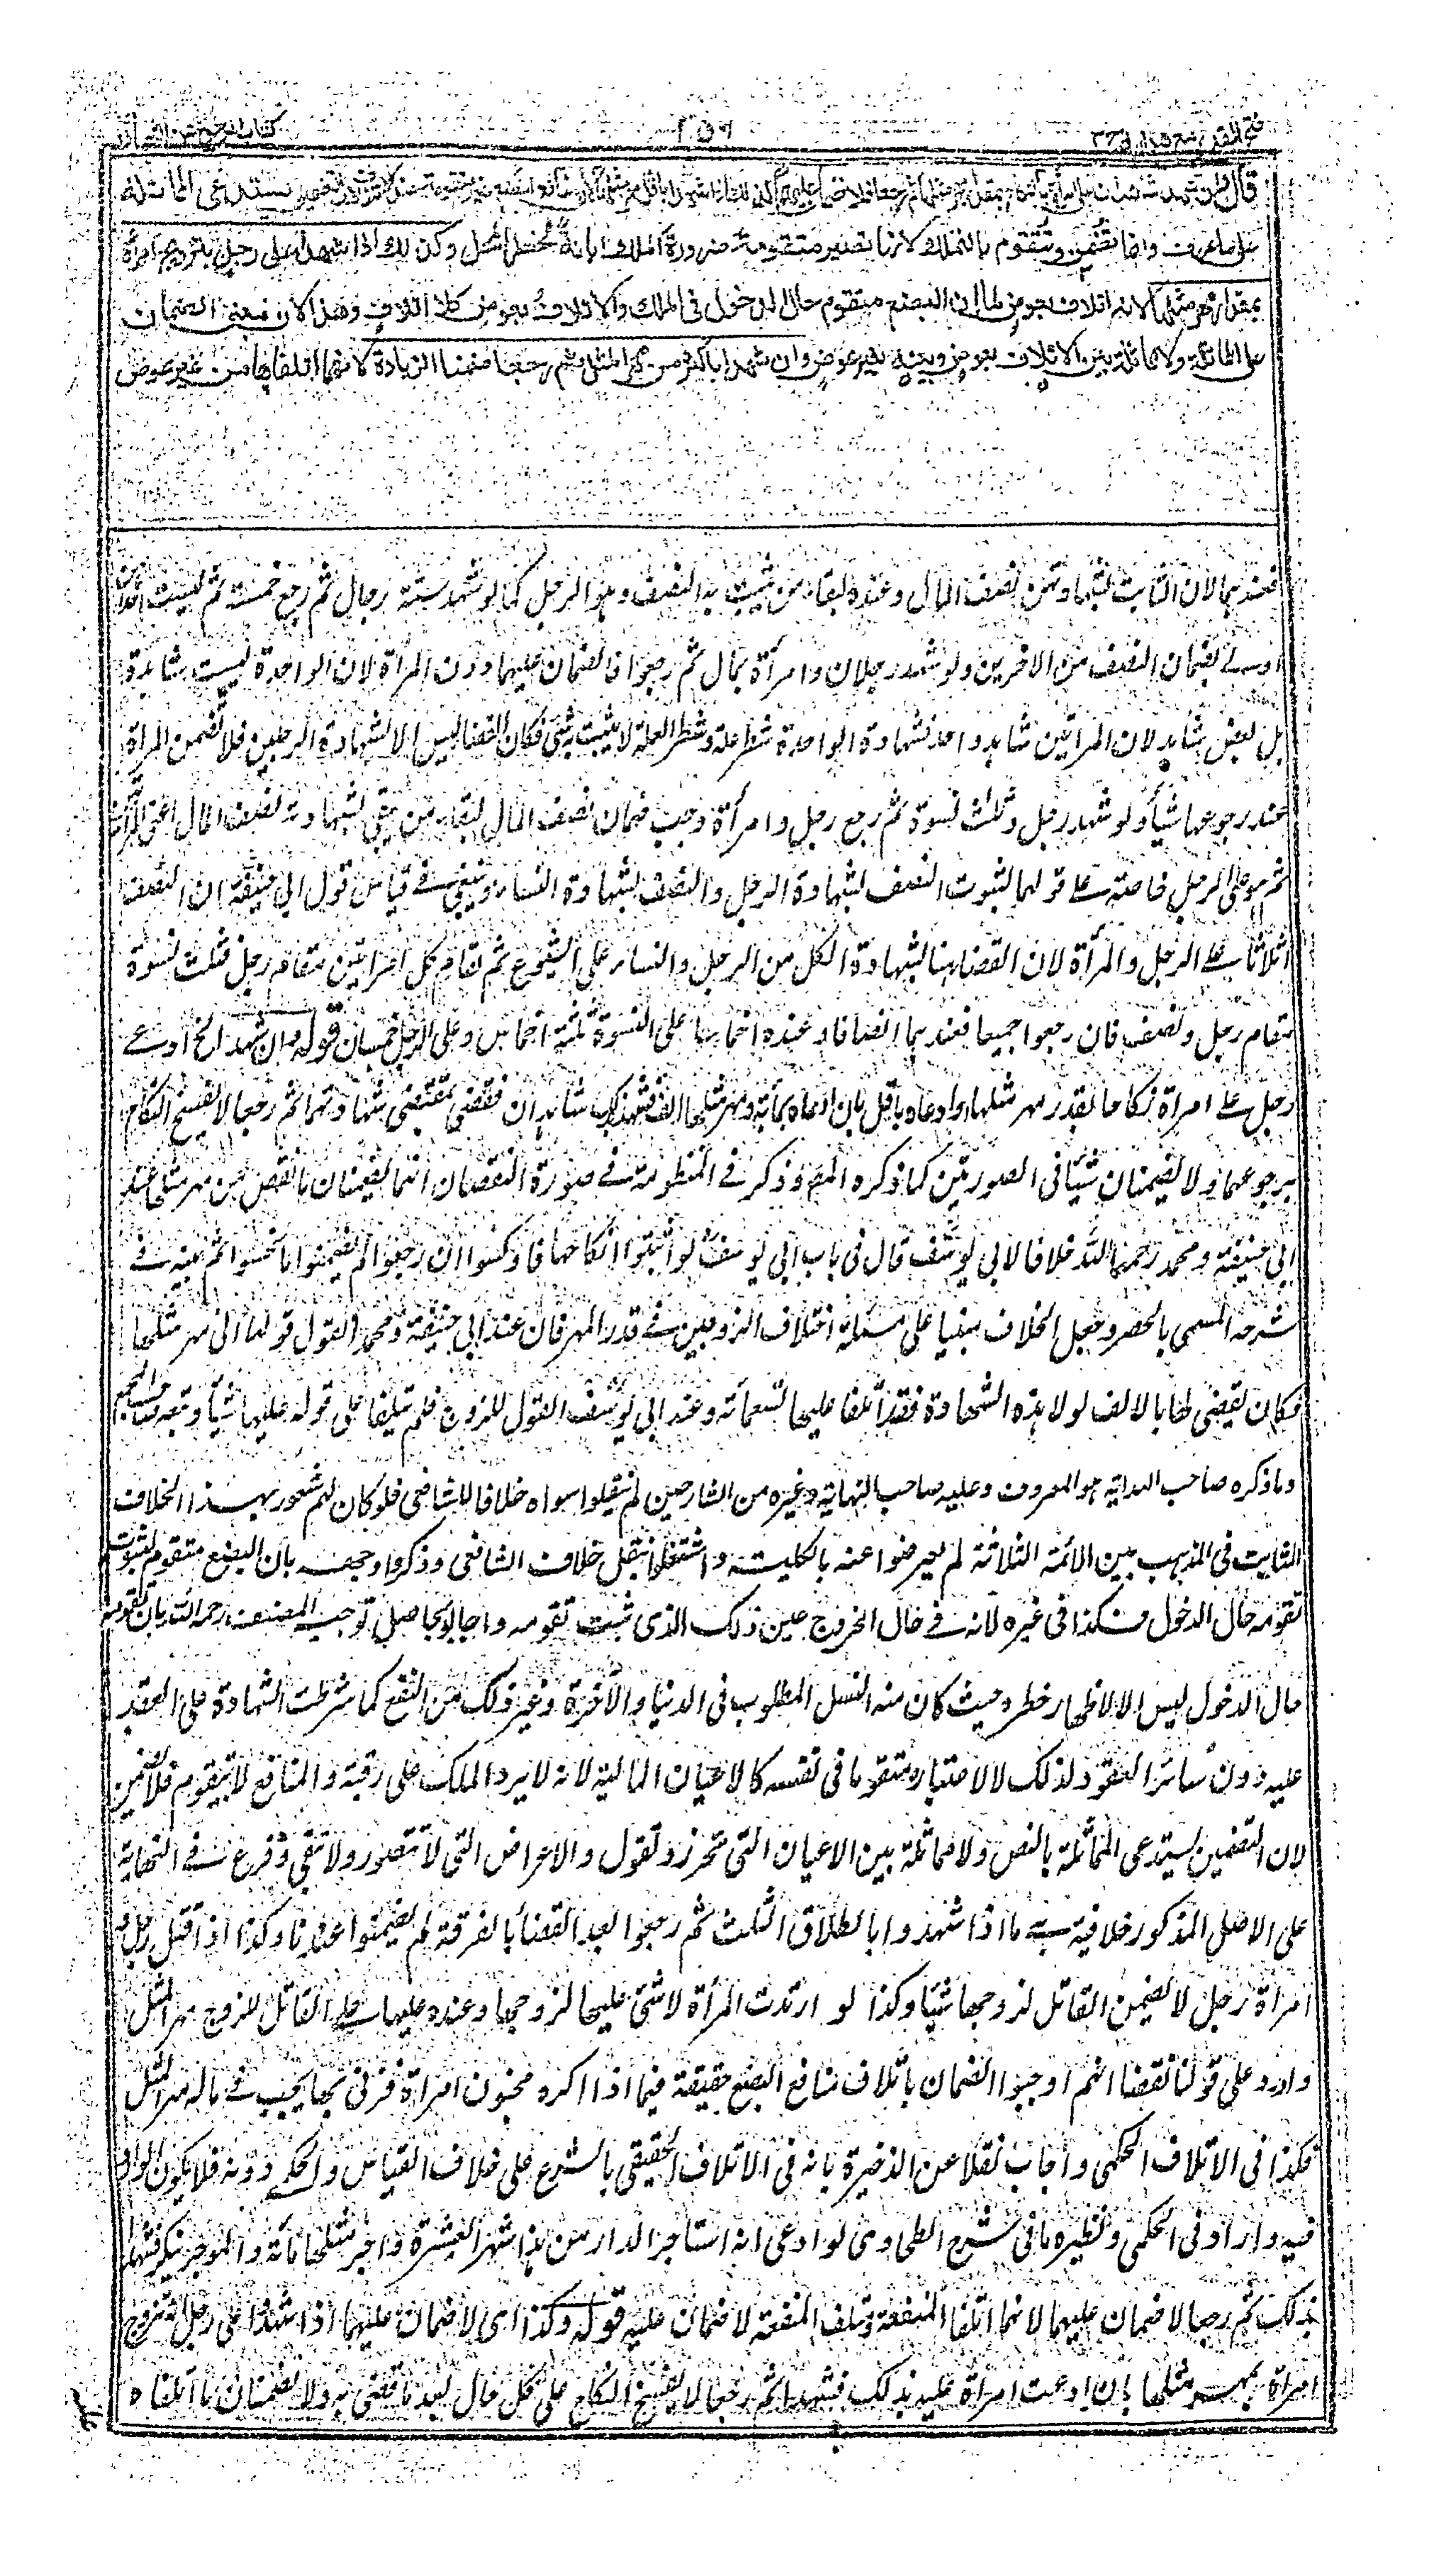 ٢٥٦
على ما عرف وانما تضمن وتتقوم بالتملك لانها تصير متقومة ضرورة الملك ابانة لخطر المحل وكذلك اذا شهدا على رجل يتزوج امرأة
بمقدار مهر مثلها لانه اتلاف بعوض لما ان البضع متقوم حال الدخول في الملك والاتلاف بعوض كلا اتلاف وهذا لان مبنى الضمان
على المماثلة ولا مماثلة بين الاتلاف بعوض وبينه بغير عوض وان شهدا باكثر من مهر المثل ثم رجعا ضمنا الزيادة لانهما اتلفاها من غير عوض
فعندهما لان الثابت بشهادتهن نصف المال وعنده لبقاء من يثبت به النصف وهو الرجل كما لو شهد ستة رجال ثم رجع خمسة ثم ليست
اولى بضمان النصف من الاخرين ولو شهد رجلان وامرأة بمال ثم رجعوا فالضمان عليهما دون المرأة لان الواحدة ليست بشاهدة
بل بعض شاهد لان المرأتين شاهد واحد فشهادة الواحدة شطر علة وشطر العلة لا يثبت به شئ فكان القضاء ليس الا بشهادة الرجلين فلا تضمن المرأة
عند رجوعها شيأ ولو شهد رجل وثلث نسوة ثم رجع رجل وامرأة وجب ضمان نصف المال لبقاء من يبقى بشهادته نصف المال اعنى المرأتين
ثم هو على الرجل خاصة على قولهما لثبوت النصف بشهادة الرجل والنصف بشهادة النساء وينبغي في قياس قول ابي حنيفة ان النصف
اثلاثا على الرجل والمرأة لان القضاء هنا بشهادة الكل من الرجل والنساء على الشيوع ثم تقام كل امرأتين مقام رجل فثلث نسوة
مقام رجل ونصف فان رجعوا جميعا فعندهما انصافا وعنده اخماسا على النسوة ثلثة اخماس وعلى الرجل خمسان قوله وان شهد الخ ادعى
رجل على امرأة نكاحا بقدر مهر مثلها او ادعاه باقل بان ادعاه بمائة ومهر مثلها الف فشهد بذلك شاهدان فقضى بمقتضى شهادتهما ثم رجعا لا يفسخ النكاح
برجوعهما ولا يضمنان شيئا في الصورتين كما ذكره المص وذكر في المنظومة في صورة النقصان انهما يضمنان ما نقص من مهر مثلها عند
ابي حنيفة ومحمد رحمهما الله خلافا لابي يوسف قال في باب ابي يوسف لو اثبتوا انكاحها فاوكسوا ان رجعوا لم يضمنوا ما بخسوا ثم عينه في
شرحه المسمى بالحصر وجعل الخلاف مبنيا على مسئلة اختلاف الزوجين في قدر المهر فان عند ابي حنيفة ومحمد القول قولها الى مهر مثلها
فكان يقضى لها بالالف لولا هذه الشهادة فقد اتلفا عليها تسعمائة وعند ابي يوسف القول للزوج فلم يتلفا على قوله عليها شيأ وتبعه صاحب المجمع
وما ذكره صاحب الهداية هو المعروف وعليه صاحب النهاية وغيره من الشارحين لم ينقلوا سواه خلافا للشافعي فلو كان لهم شعور بهذا الخلاف
الثابت في المذهب بين الائمة الثلاثة لم يعرضوا عنه بالكلية واشتغلوا بنقل خلاف الشافعي وذكروا وجهه بان البضع متقوم لثبوت
تقومه حال الدخول فكذا في غيره لانه في حال الخروج عين ذلك الذى ثبت تقومه واجابوا بحاصل توجيه المصنف رحمه الله بان تقومه
حال الدخول ليس الا لاظهار خطره حيث كان منه النسل المطلوب في الدنيا والآخرة وغير ذلك من النفع كما شرطت الشهادة على العقد
عليه دون سائر العقود لذلك لا لاعتباره متقوما في نفسه كالاعيان المالية لانه لا يرد الملك على رقبته والمنافع لا تتقوم فلا تضمن
لان التضمين يستدعى المماثلة بالنص ولا مماثلة بين الاعيان التي تحرز وتمول والاعراض التي لا تتصور ولا تبقى وفرع في النهاية
على الاصل المذكور خلافية هي ما اذا شهدوا بالطلاق الثلث ثم رجعوا بعد القضاء بالفرقة لم يضمنوا عندنا وكذا اذا قتل رجل
امرأة رجل لا يضمن القاتل لزوجها شيئا وكذا لو ارتدت المرأة لا شئ عليها لزوجها وعنده عليها وعلى القاتل للزوج مهر المثل
واورد على قولنا نقضا انهم اوجبوا الضمان باتلاف منافع البضع حقيقة فيما اذا اكره مجنون امرأة فزنى بها يجب في ماله مهر المثل
فكذا في الاتلاف الحكمي واجاب نقلا عن الذخيرة بانه في الاتلاف الحقيقي بالشرع على خلاف القياس والحكمي دونه فلا يكون الوارد
فيه واردا في الحكمي ونظيره ما في شرح الطحاوى لو ادعى انه استاجر الدار من هذا شهرا بعشرة واجر مثلها مائة والموجر ينكر فشهدا
بذلك ثم رجعا لا ضمان عليهما لانهما اتلفا المنفعة ومتلف المنفعة لا ضمان عليه قوله وكذا اى لا ضمان عليهما اذا شهدا على رجل انه تزوج
امرأة بمهر مثلها بان ادعت امرأة عليه بذلك فشهدا ثم رجعا لا يفسخ النكاح على كل حال بعد ما قضى به ولا يضمنان ما اتلفاه